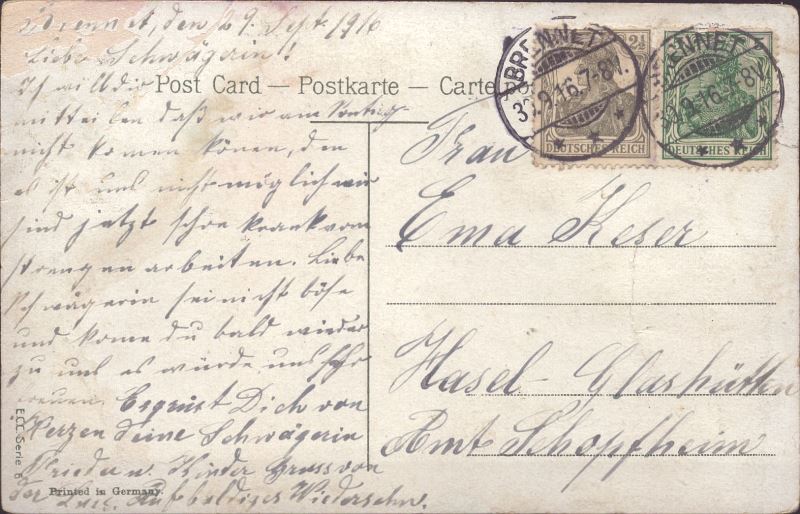 Brennet, den 29 Sept. 1916
Liebe Schwägerin!
Ich will dir
mitteilen daß wir am Sontag
nicht komen könen, den
es ist uns nicht möglich wir
sind jetzt schon krank vom
strengen arbeiten. Liebe
Schwägerin sei nicht böse
und kome du bald wieder
zu uns es würde uns sehr
freuen. Es grüst Dich von
Herzen deine Schwägerin
Frieda u. Kinder Gruss von
der Auf baldiges Wiedersehn.
Post Card — Postkarte — Carte
BRENNET
30.9.16.7-8V.
2½
DEUTSCHES REICH
BRENNET
30.9.16.7-8V.
DEUTSCHES REICH
Frau
Ema Keser
Hasel-Glashütten
Amt Schopfheim
E.C.L. Serie 6
Printed in Germany.